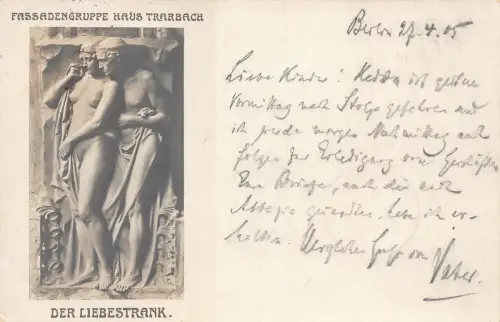 FASSADENGRUPPE HAUS TRARBACH
DER LIEBESTRANK.
Berlin 27.4.05
Liebe Kinder! Hedda ist gestern
Vormittag nach Stolp gefahren und
ich werde morgen Nachmittag auch
folgen zur Erledigung von Geschäften
Eure Briefe, auch die nach
Abbazia gesandten, habe ich er-
halten. Herzlichen Gruß von
Vater.